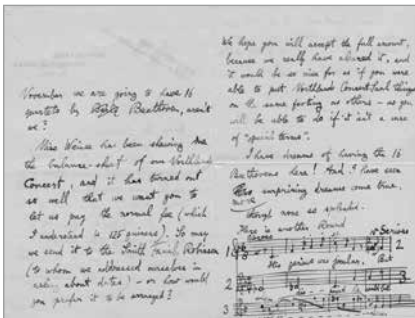 November we are going to have 16
quartets by Beethoven, aren't
we?
Miss Weiner has been showing me
the balance-sheet of our Northlands
Concert, and it has turned out
so well that we want you to
let us pay the normal fee (which
I understand is 125 guineas). So may
we send it to the Smith Robinson
(to whom we addressed ourselves in
asking about dates) - or how would
you prefer it to be arranged?
We hope you will accept the full amount,
because we really have it, and
it would be so nice for us if you were
able to put Northlands Concert things
on the same footing as others - as you
will be able to do if it isn't a case
of "special terms".
I have dreams of having the 16
Beethovens here! And I have seen
surprising dreams come true,
though none so splendid.
Here is another Round
Serious
1
2
2
3
3
His genius was jocular, But